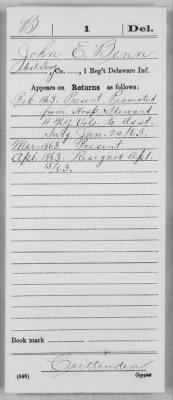 B | 1 | Del.
John E. Benn
Asst. Surg., Co. , 1 Reg't Delaware Inf.
Appears on Returns as follows:
Feb. 1863. Present. Promoted
from Hosp. Steward
4 NY Vols. to Asst.
Surg. Jan. 20/63.
Mar. 1863 Present
Apl. 1863. Resigned Apl.
/63.
Book mark
Crittenden
(546) Copyist